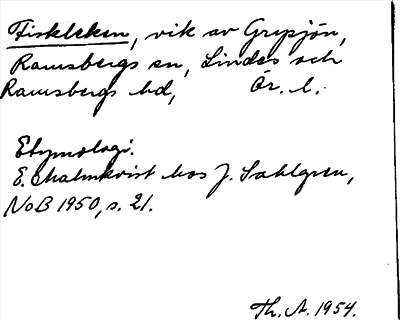 Fiskleken, vik av Grypsjön,
Ramsbergs sn, Lindes och
Ramsbergs hd, Ör. l.
Etymologi.
E. Malmkvist hos J. Sahlgren,
NoB 1950, s. 21.
Th. A. 1954.